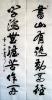 書山有路勤为徑
学海無涯苦作舟